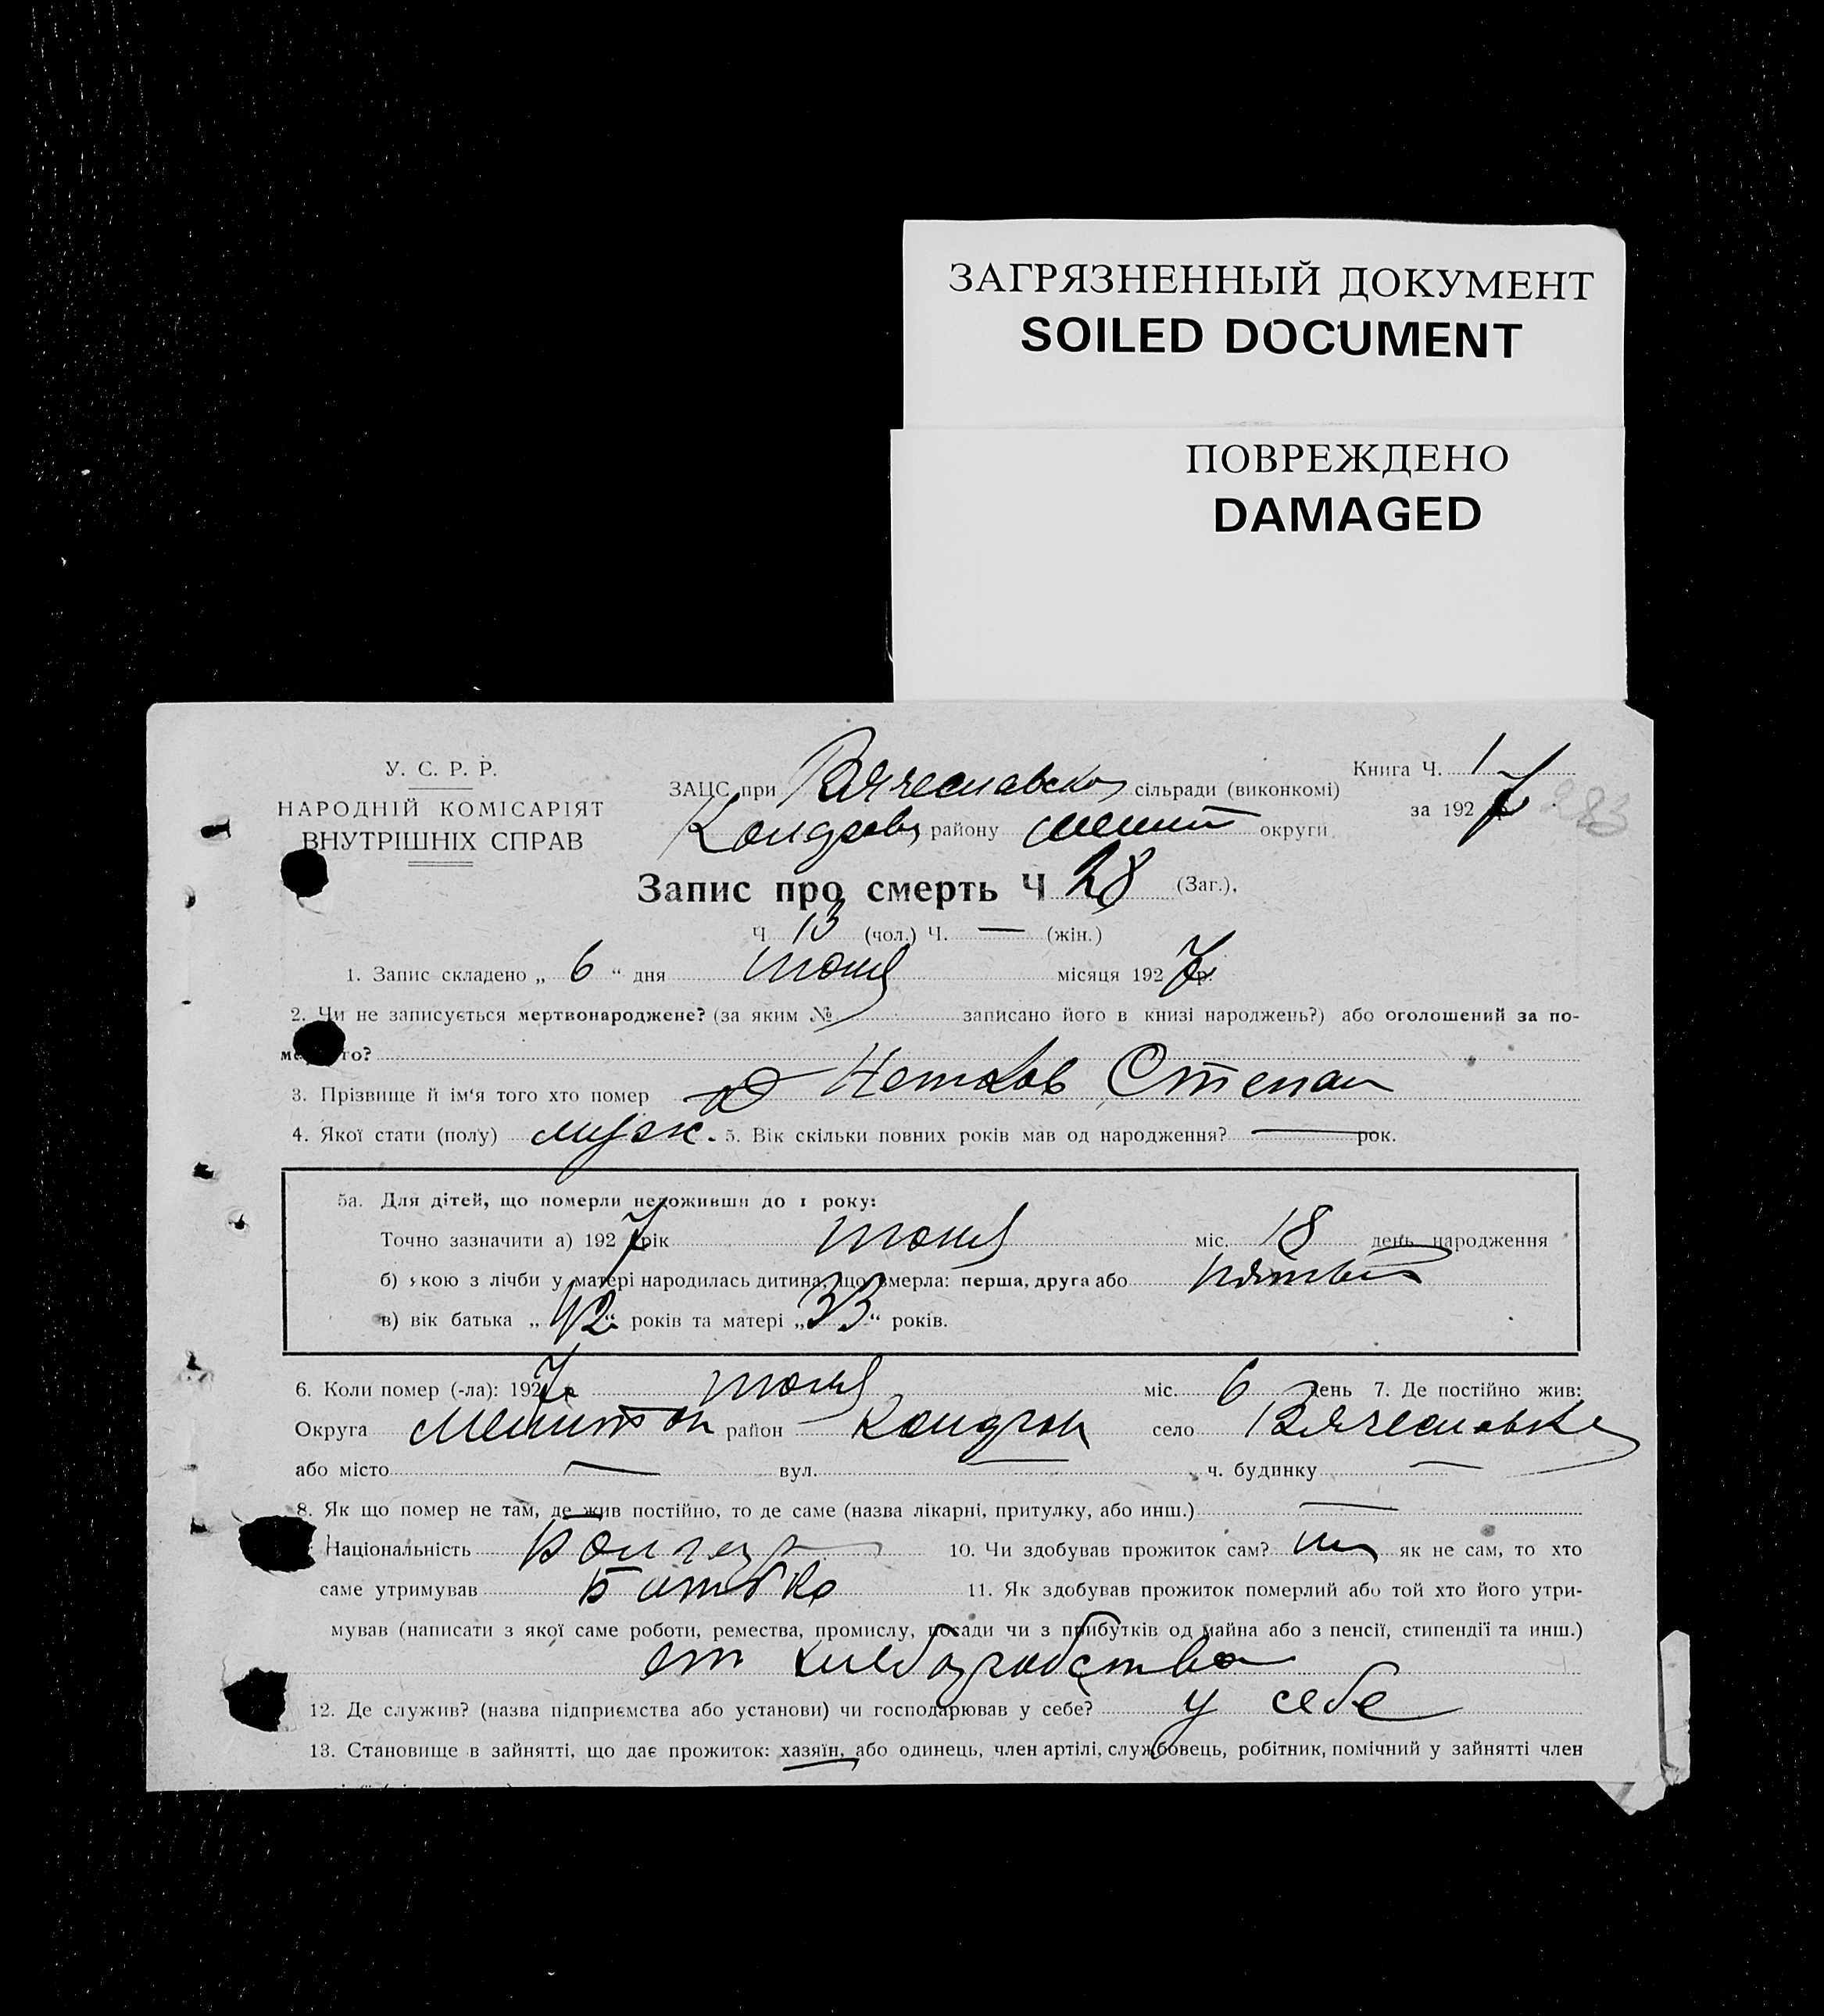 ЗАГРЯЗНЕННЫЙ ДОКУМЕНТ
SOILED DOCUMENT
ПОВРЕЖДЕНО
DAMAGED
У. С. Р. Р.
НАРОДНІЙ КОМІСАРІЯТ
ВНУТРІШНІХ СПРАВ
Книга Ч. 1
за 1927
283
ЗАЦС при Вячеславско сільради (виконкомі)
району округи
Запис про смерть Ч 28 (Заг.),
Ч 13 (чол.) Ч. — (жін.)
1. Запис складено „ 6 “ дня июня місяця 1927 р.
2. Чи не записується мертвонароджене? (за яким № записано його в книзі народжень?) або оголошений за по-
то?
3. Прізвище й ім‘я того хто помер Степан
4. Якої стати (полу) муж. 5. Вік скільки повних років мав од народження? — рок.
5а. Для дітей, що померли недоживши до 1 року:
Точно зазначити а) 1927 рік июня міс. 18 день народження
б) якою з лічби у матері народилась дитина, що вмерла: перша, друга або
в) вік батька „ 42 “ років та матері „ 33 “ років.
6. Коли помер (-ла): 1927 июня міс. 6 день 7. Де постійно жив:
Округа Мелитоп район село Вячеславка
або місто — вул. — ч. будинку —
8. Як що помер не там, де жив постійно, то де саме (назва лікарні, притулку, або инш.) —
Національність Болгар 10. Чи здобував прожиток сам? як не сам, то хто
саме утримував Батько 11. Як здобував прожиток померлий або той хто його утри-
мував (написати з якої саме роботи, ремества, промислу, посади чи з прибутків од майна або з пенсії, стипендії та инш.)
от хлебопашества
12. Де служив? (назва підприємства або установи) чи господарював у себе? у себе
13. Становище в зайнятті, що дає прожиток: хазяїн, або одинець, член артілі, службовець, робітник, помічний у зайнятті член